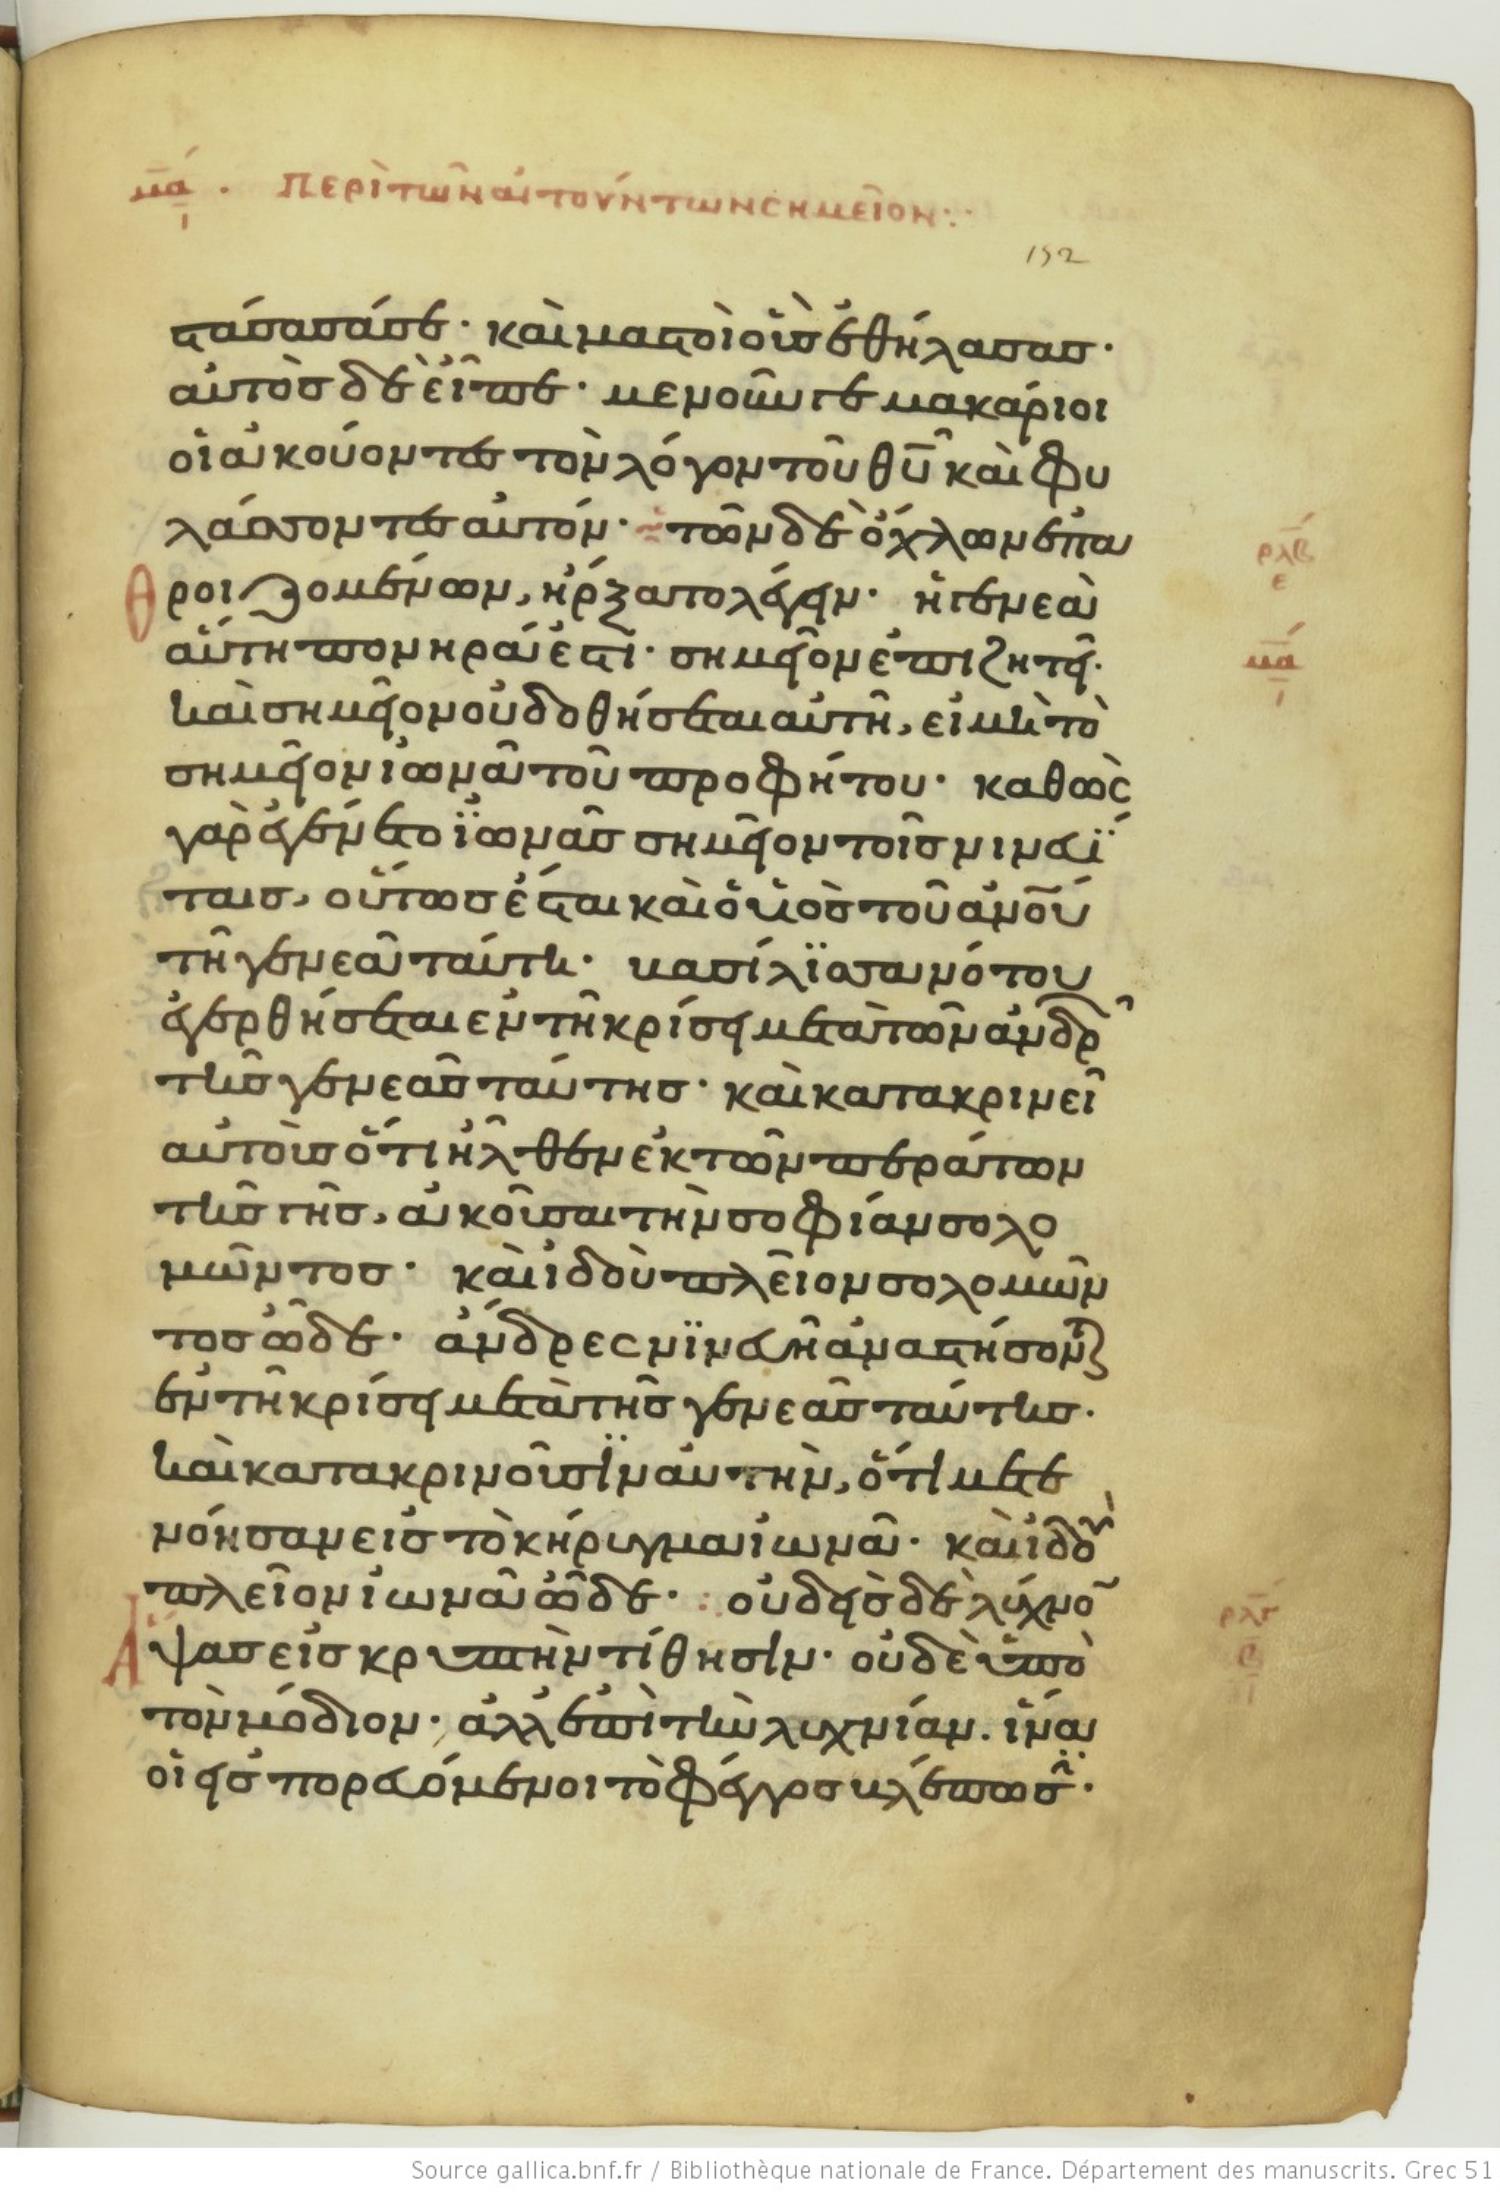 μα· περὶ τῶν αἰτούντων σημεῖον:·
152
στάσασά σε· καὶ μαστοὶ οὓς ἐθήλασας·
αὐτὸς δὲ εἶπε· μενοῦνγε μακάριοι
οἱ ἀκούοντες τὸν λόγον τοῦ θυ καὶ φυ
λάσσοντες αὐτόν· τῶν δὲ ὄχλων ἐπα
ροιζομένων, ἤρξατο λέγειν· ἡ γενεὰ
αὕτη πονηρά ἐστι· σημεῖον ἐπιζητεῖ·
καὶ σημεῖον οὐ δοθήσεται αὐτῆ, εἰ μὴ τὸ
σημεῖον ἰωνᾶ τοῦ προφήτου· καθὼς
γὰρ ἐγένετο ϊωνᾶς σημεῖον τοῖς νινευΐ
ταις, οὕτως ἔσται καὶ ὁ υἱὸς τοῦ ανου
τῆ γενεᾶ ταύτη· βασίλϊσσα νότου
ἐγερθήσεται ἐν τῆ κρίσει μετὰ τῶν ἀνδρ
τῆς γενεᾶς ταύτης· καὶ κατακρινεῖ
αὐτοὺς ὅτι ἦλθεν ἐκ τῶν περάτων
τῆς γῆς, ἀκοῦσαι τὴν σοφίαν σολο
μῶντος· καὶ ἰδοὺ πλεῖον σολομῶν
τος ὧδε· ἄνδρες νϊνευῆ ἀναστήσοντ
ἐν τῆ κρίσει μετὰ τῆς γενεᾶς ταύτης·
καὶ κατακρινοῦσϊν αὐτὴν, ὅτι μετε
νόησαν εἰς τὸ κήρυγμα ἰωνᾶ· καὶ ἰδοὺ
πλεῖον ἰωνᾶ ὧδε· οὐδεὶς δὲ λύχνο
ἅψας εἰς κρυπτὴν τίθησιν· οὐδὲ ὑπὸ
τὸν μόδιον· ἀλλ' ἐπὶ τὴν λυχνίαν. ἵνα
οἱ εἰσπορευόμενοι τὸ φέγγος βλέπωσι·
Θ
ρλβ
ε
μα
Α
ρλγ
β
Source gallica.bnf.fr / Bibliothèque nationale de France. Département des manuscrits. Grec 51